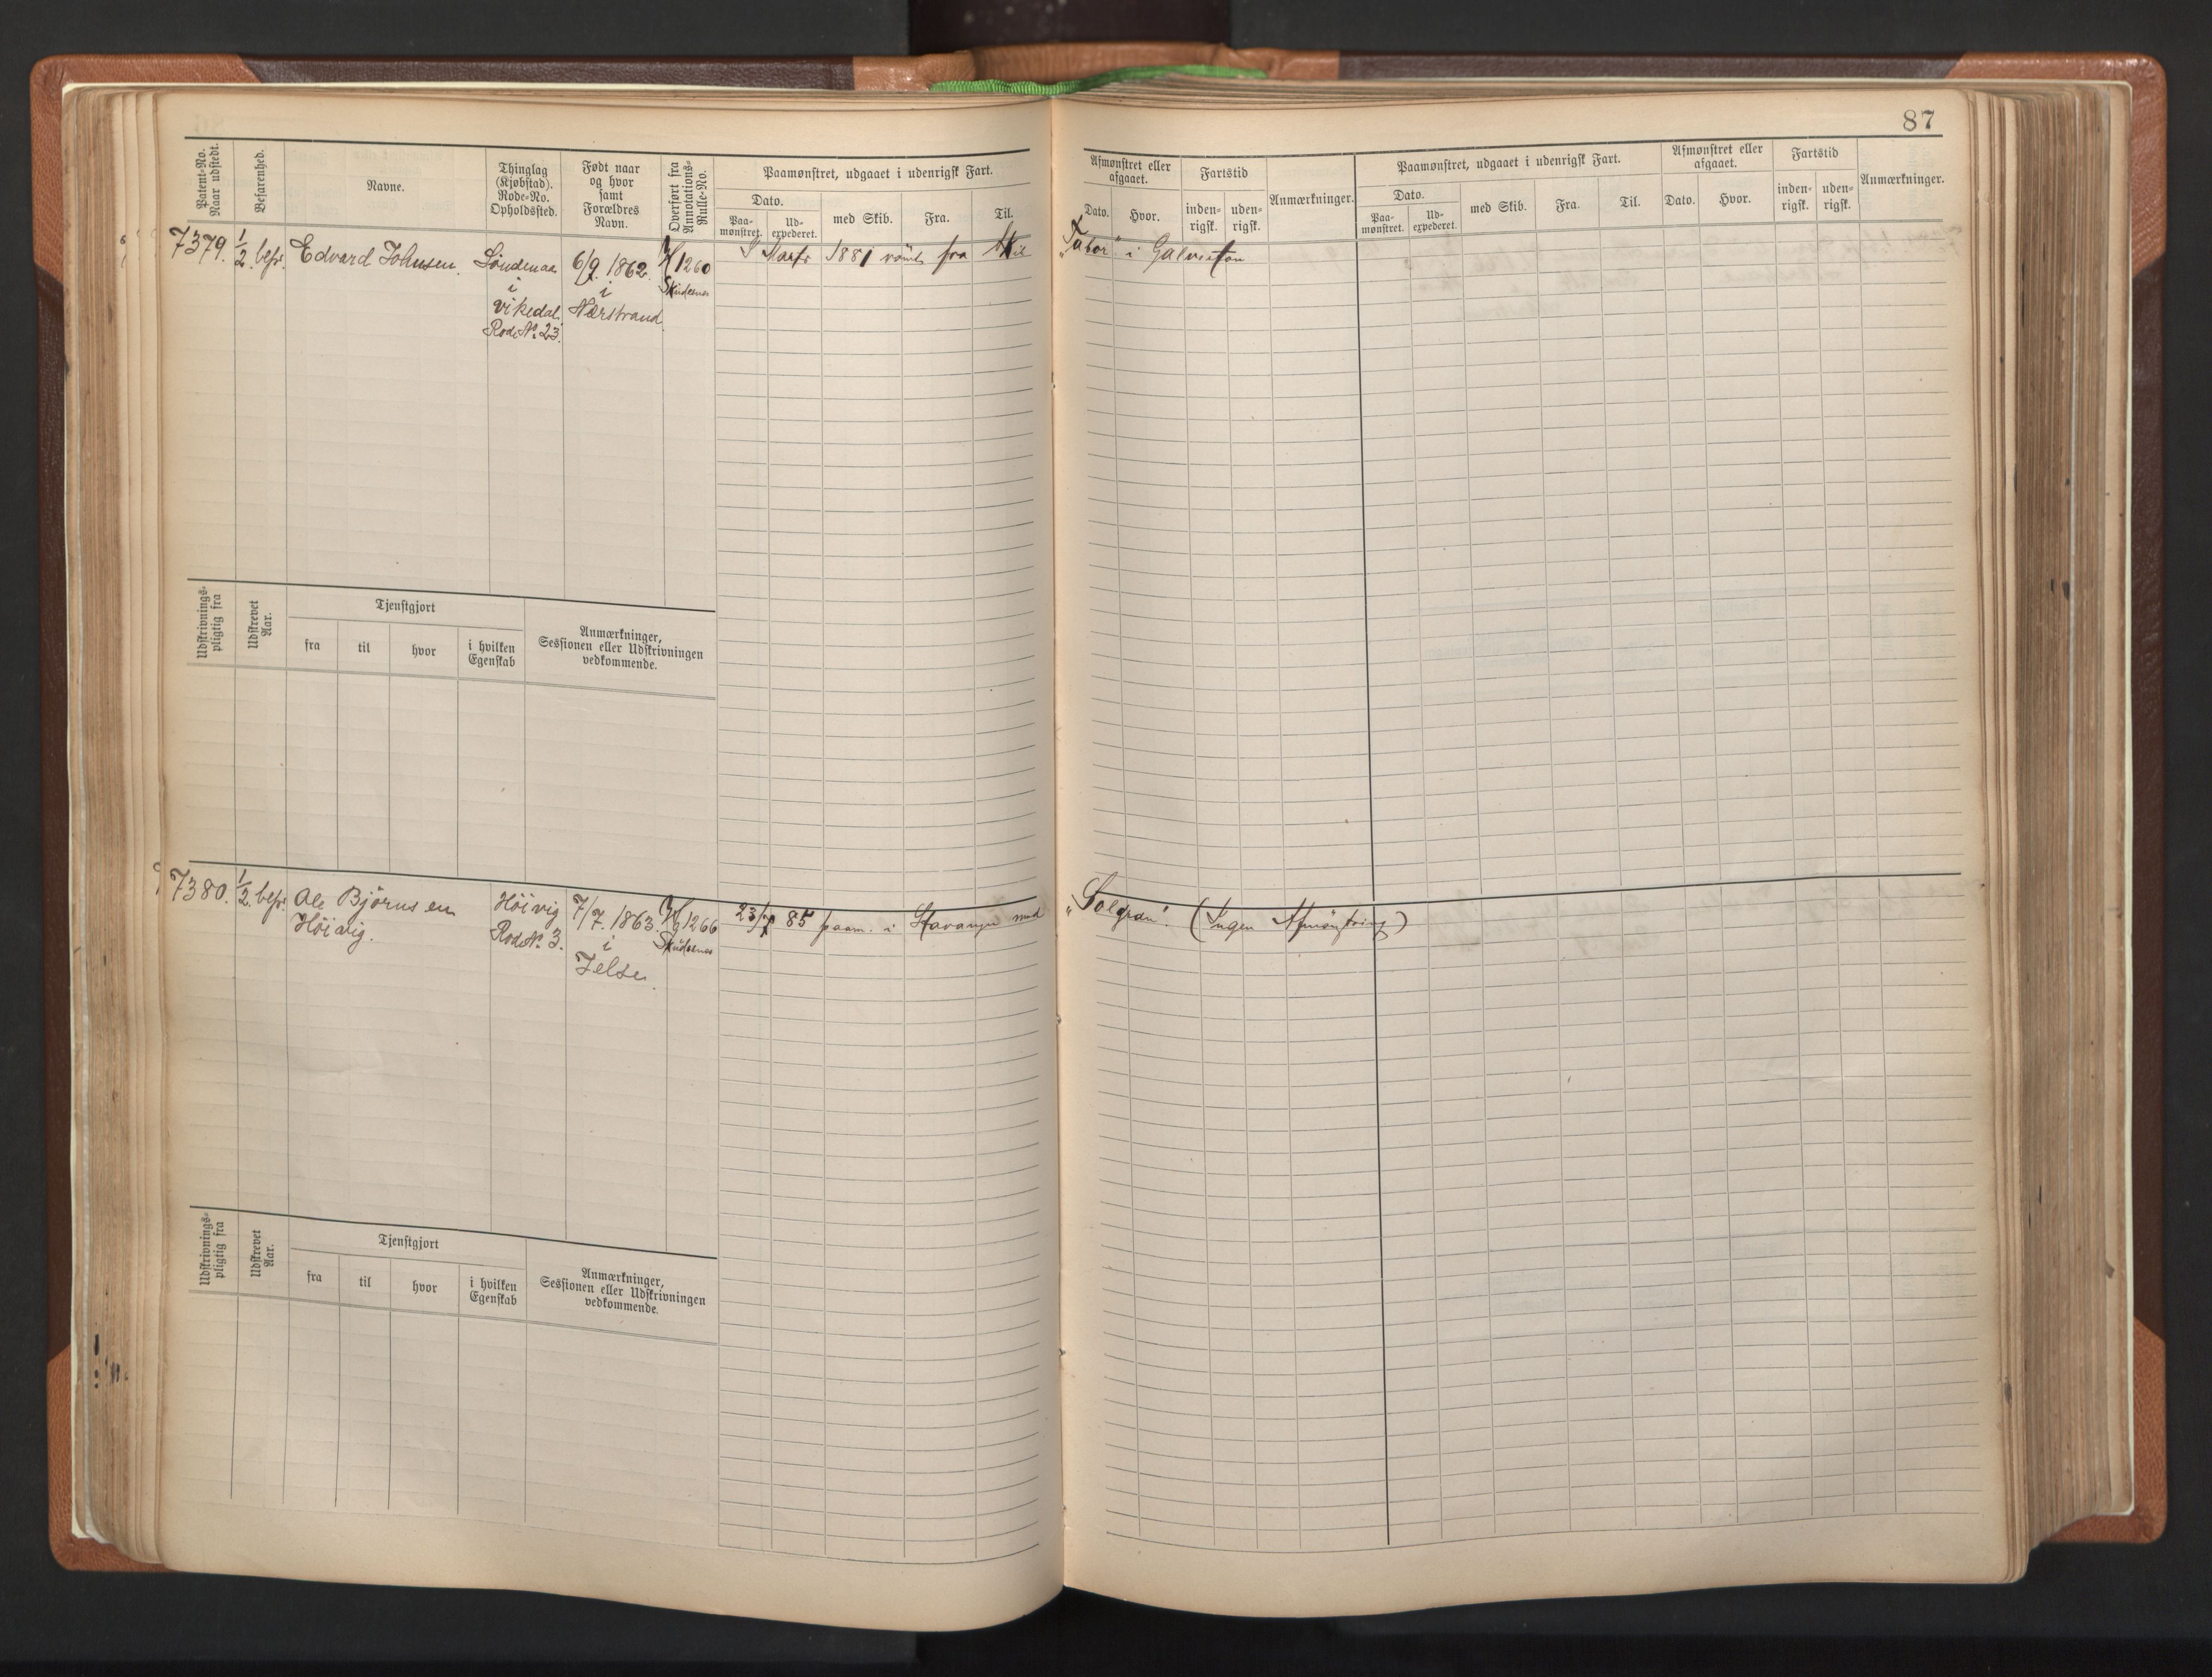 87
Patent-No.
Naar udstedt.
Befarenhed.
Navne.
Thinglag
(Kjøbstad).
Rode-No.
Opholdssted.
Født naar
og hvor
samt
Forældres
Navn.
Overført fra
Annotations-
Rulle-No.
Paamønstret, udgaaet i udenrigsk Fart.
Dato.
Paa-
mønstret.
Ud-
expederet.
med Skib.
Fra.
Til.
Afmønstret eller
afgaaet.
Dato.
Hvor.
Fartstid
inden-
rigsk.
uden-
rigsk.
Anmærkninger.
Paamønstret, udgaaet i udenrigsk Fart.
Dato.
Paa-
mønstret.
Ud-
expederet.
med Skib.
Fra.
Til.
Afmønstret eller
afgaaet.
Dato.
Hvor.
Fartstid
inden-
rigsk.
uden-
rigsk.
Anmærkninger.
7379.
1/2 befr.
Edvard Johnsen.
Søndenaa
i
Vikedal.
Rode No. 23.
6/9. 1862.
i
Nærstrand.
1260
Skudesnes
I Marts 1881 römt fra Skib
"Tabor" i Galveston
Udskrivnings-
pligtig fra
Udskrevet
Aar.
Tjenstgjort
fra
til
hvor
i hvilken
Egenskab
Anmærkninger,
Sessionen eller Udskrivningen
vedkommende.
7380.
1/2. befr.
Ole Björnsen
Höivig.
Höivig
Rode No. 3.
7/7. 1863.
i
Jelse.
1266
Skudesnes
85 paam. i Stavanger med
(Ingen Afmönstring)
Udskrivnings-
pligtig fra
Udskrevet
Aar.
Tjenstgjort
fra
til
hvor
i hvilken
Egenskab
Anmærkninger,
Sessionen eller Udskrivningen
vedkommende.